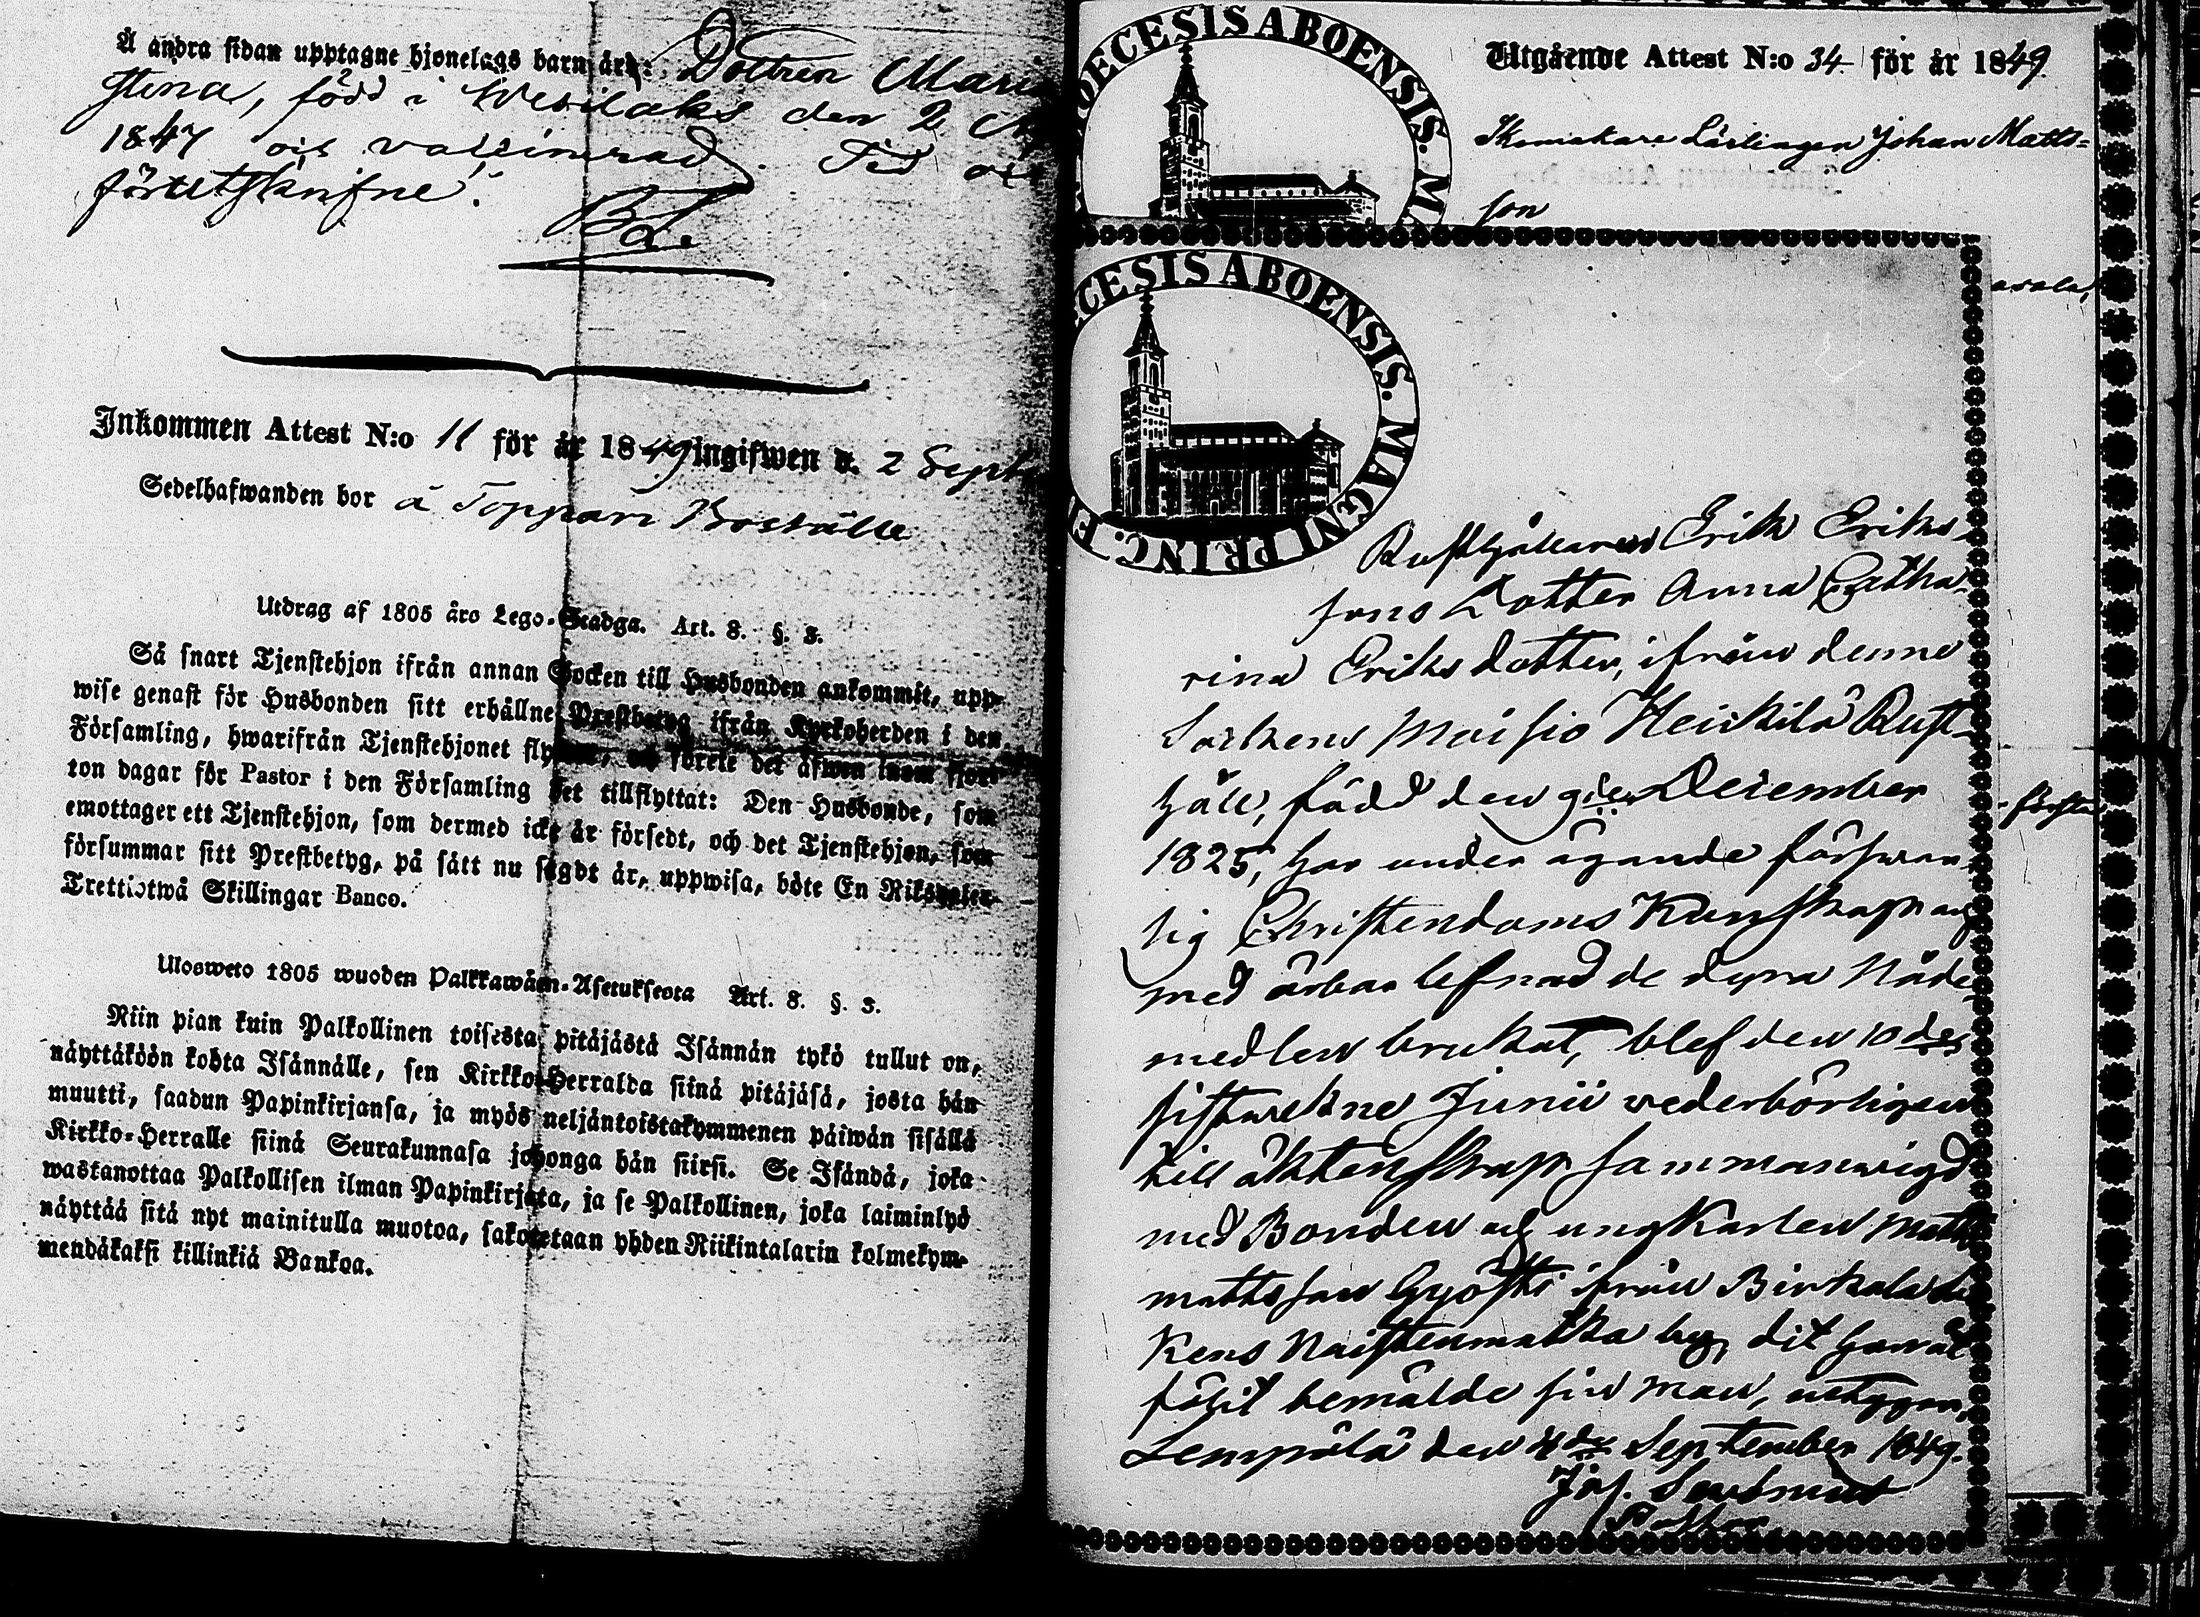 Å andra sidan upptagne hjonelags barn är: Dottren Maria
Stina, född i Wesilaks den 2
1847 vaccinerad. Tid
förutskrifne.
Inkommen Attest N:o 11 för år 1849 ingifwen d. 2 Sept
Sedelhafwanden bor å Toppari Boställe
Utdrag af 1805 års Lego-Stadga. Art. 8. §. 3.
Så snart Tjenstehjon ifrån annan Socken till Husbonden ankommit, upp-
wise genast för Husbonden sitt erhållne Prestbetyg ifrån Kyrkoherden i den
Församling, hwarifrån Tjenstehjonet flyttat, och förete det äfwen inom fjor-
ton dagar för Pastor i den Församling det tillflyttat: Den Husbonde, som
emottager ett Tjenstehjon, som dermed icke är försedt, och det Tjenstehjon, som
försummar sitt Prestbetyg, på sätt nu sagdt är, uppwisa, böte En Riksdaler
Trettiotwå Skillingar Banco.
Ulosweto 1805 wuoden Palkkawäen-Asetuksesta Art. 8. §. 3.
Niin pian kuin Palkollinen toisesta pitäjästä Isännän tykö tullut on,
näyttäköön kohta Isännälle, sen Kirkko-Herralda siinä pitäjäsä, josta hän
muutti, saadun Papinkirjansa, ja myös neljäntoistakymmenen päiwän sisällä
Kirkko-Herralle siinä Seurakunnasa johonga hän siirsi. Se Isändä, joka
wastanottaa Palkollisen ilman Papinkirjata, ja se Palkollinen, joka laiminlyö
näyttää sitä nyt mainitulla muotoa, sakotetaan yhden Riikintalarin kolmekym-
mendäkaksi killinkiä Bankoa.
DIOECESIS ABOENSIS. M
Utgående Attest N:o 34 för år 1849
Skomakare Lärlingen Johan Matts-
son
asala,
DIOECESIS ABOENSIS. MAGNI PRINC. FI
Rusthållaren Erik Eriks-
sons Dotter Anna Catha-
rina Eriksdotter, ifrån denne
Sockens Moisio Heikkilä Rust-
håll, född den 9de December
1825, har under ägande försvar-
lig Christendoms Kunskap och
med ärbar lefnad de dyra Nåde-
medlen brukat, blef den 10de
sistwekne Junii vederbörligen
till äktenskap sammanwigd
med Bonden och ungkarlen Matts
Mattsson Gyösti ifrån Birkala So-
kens Naistenmatka by, dit hon åt-
följt bemälde sin man, uttygar,
Lempälä den 4de September 1849.
Jos. Sandmark
Pastor